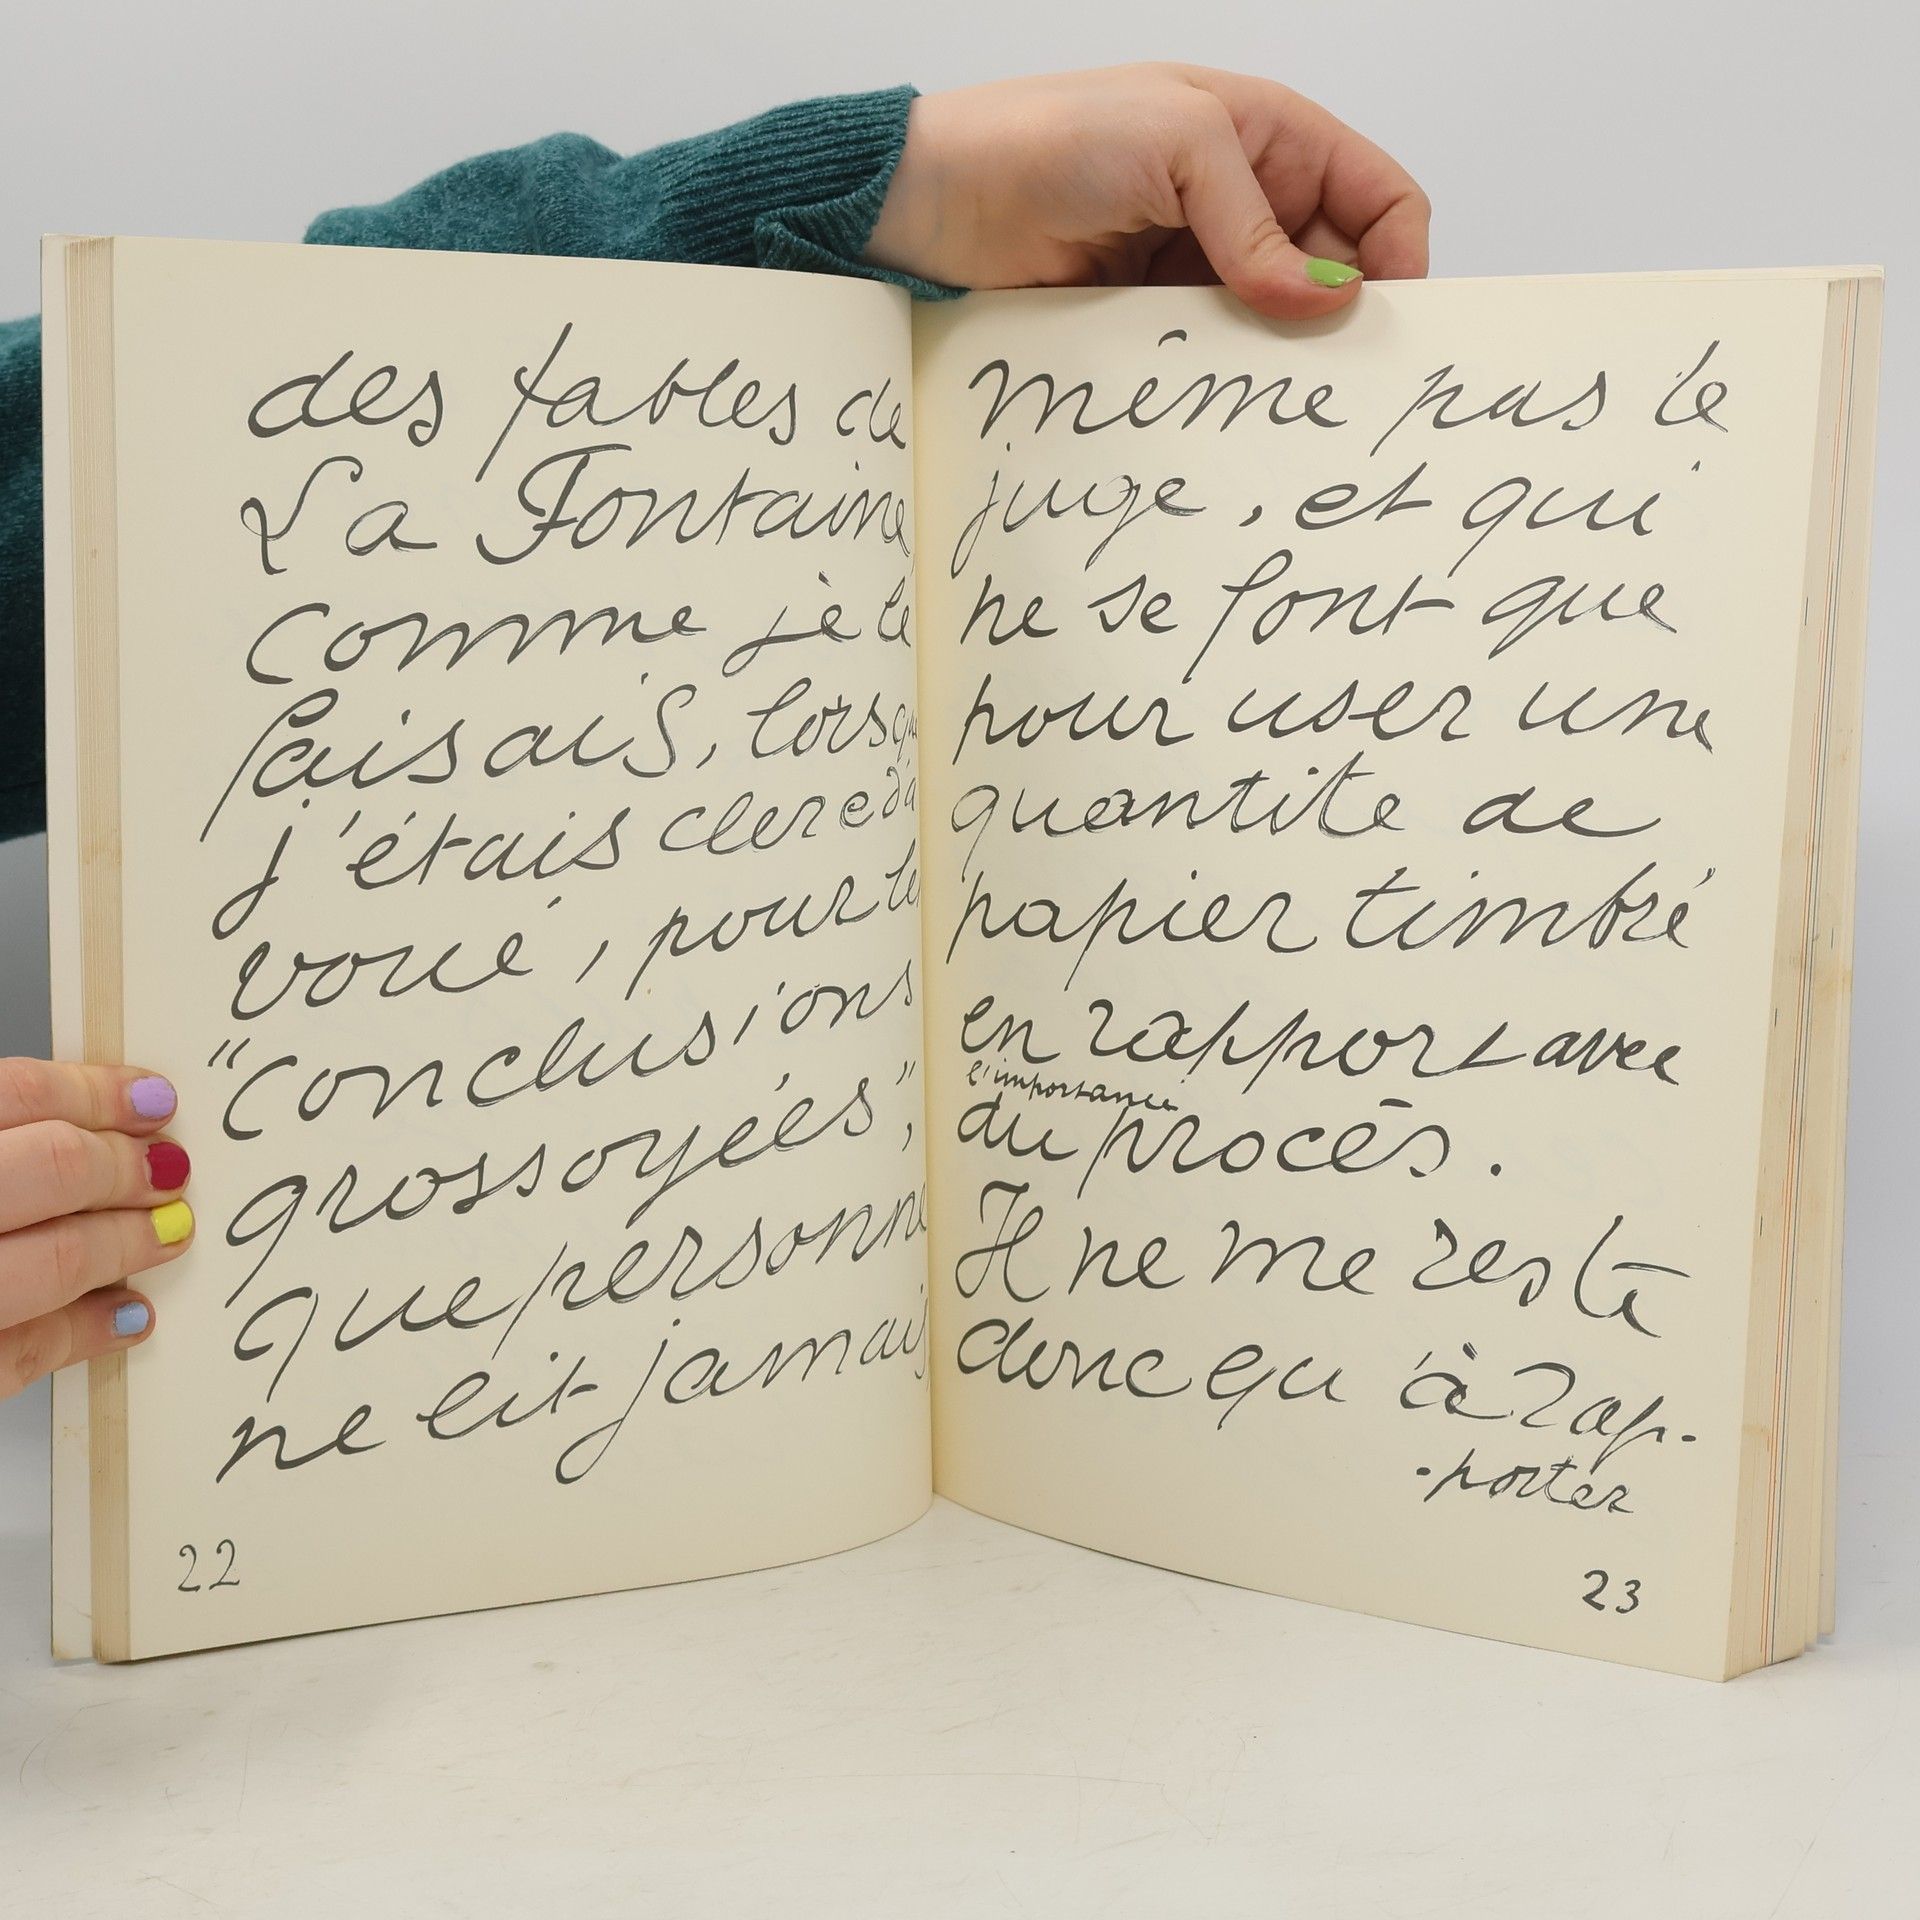 des fables de
La Fontaine,
comme je le
faisais, lorsque
j'étais clerc d'a
voué, pour les
"conclusions
grossoyées",
que personne
ne lit jamais,
22
même pas le
juge, et qui
ne se font que
pour user une
quantité de
papier timbré
en rapport avec
l'importance
du procès.
Il ne me reste
donc qu'à rap-
-porter
23